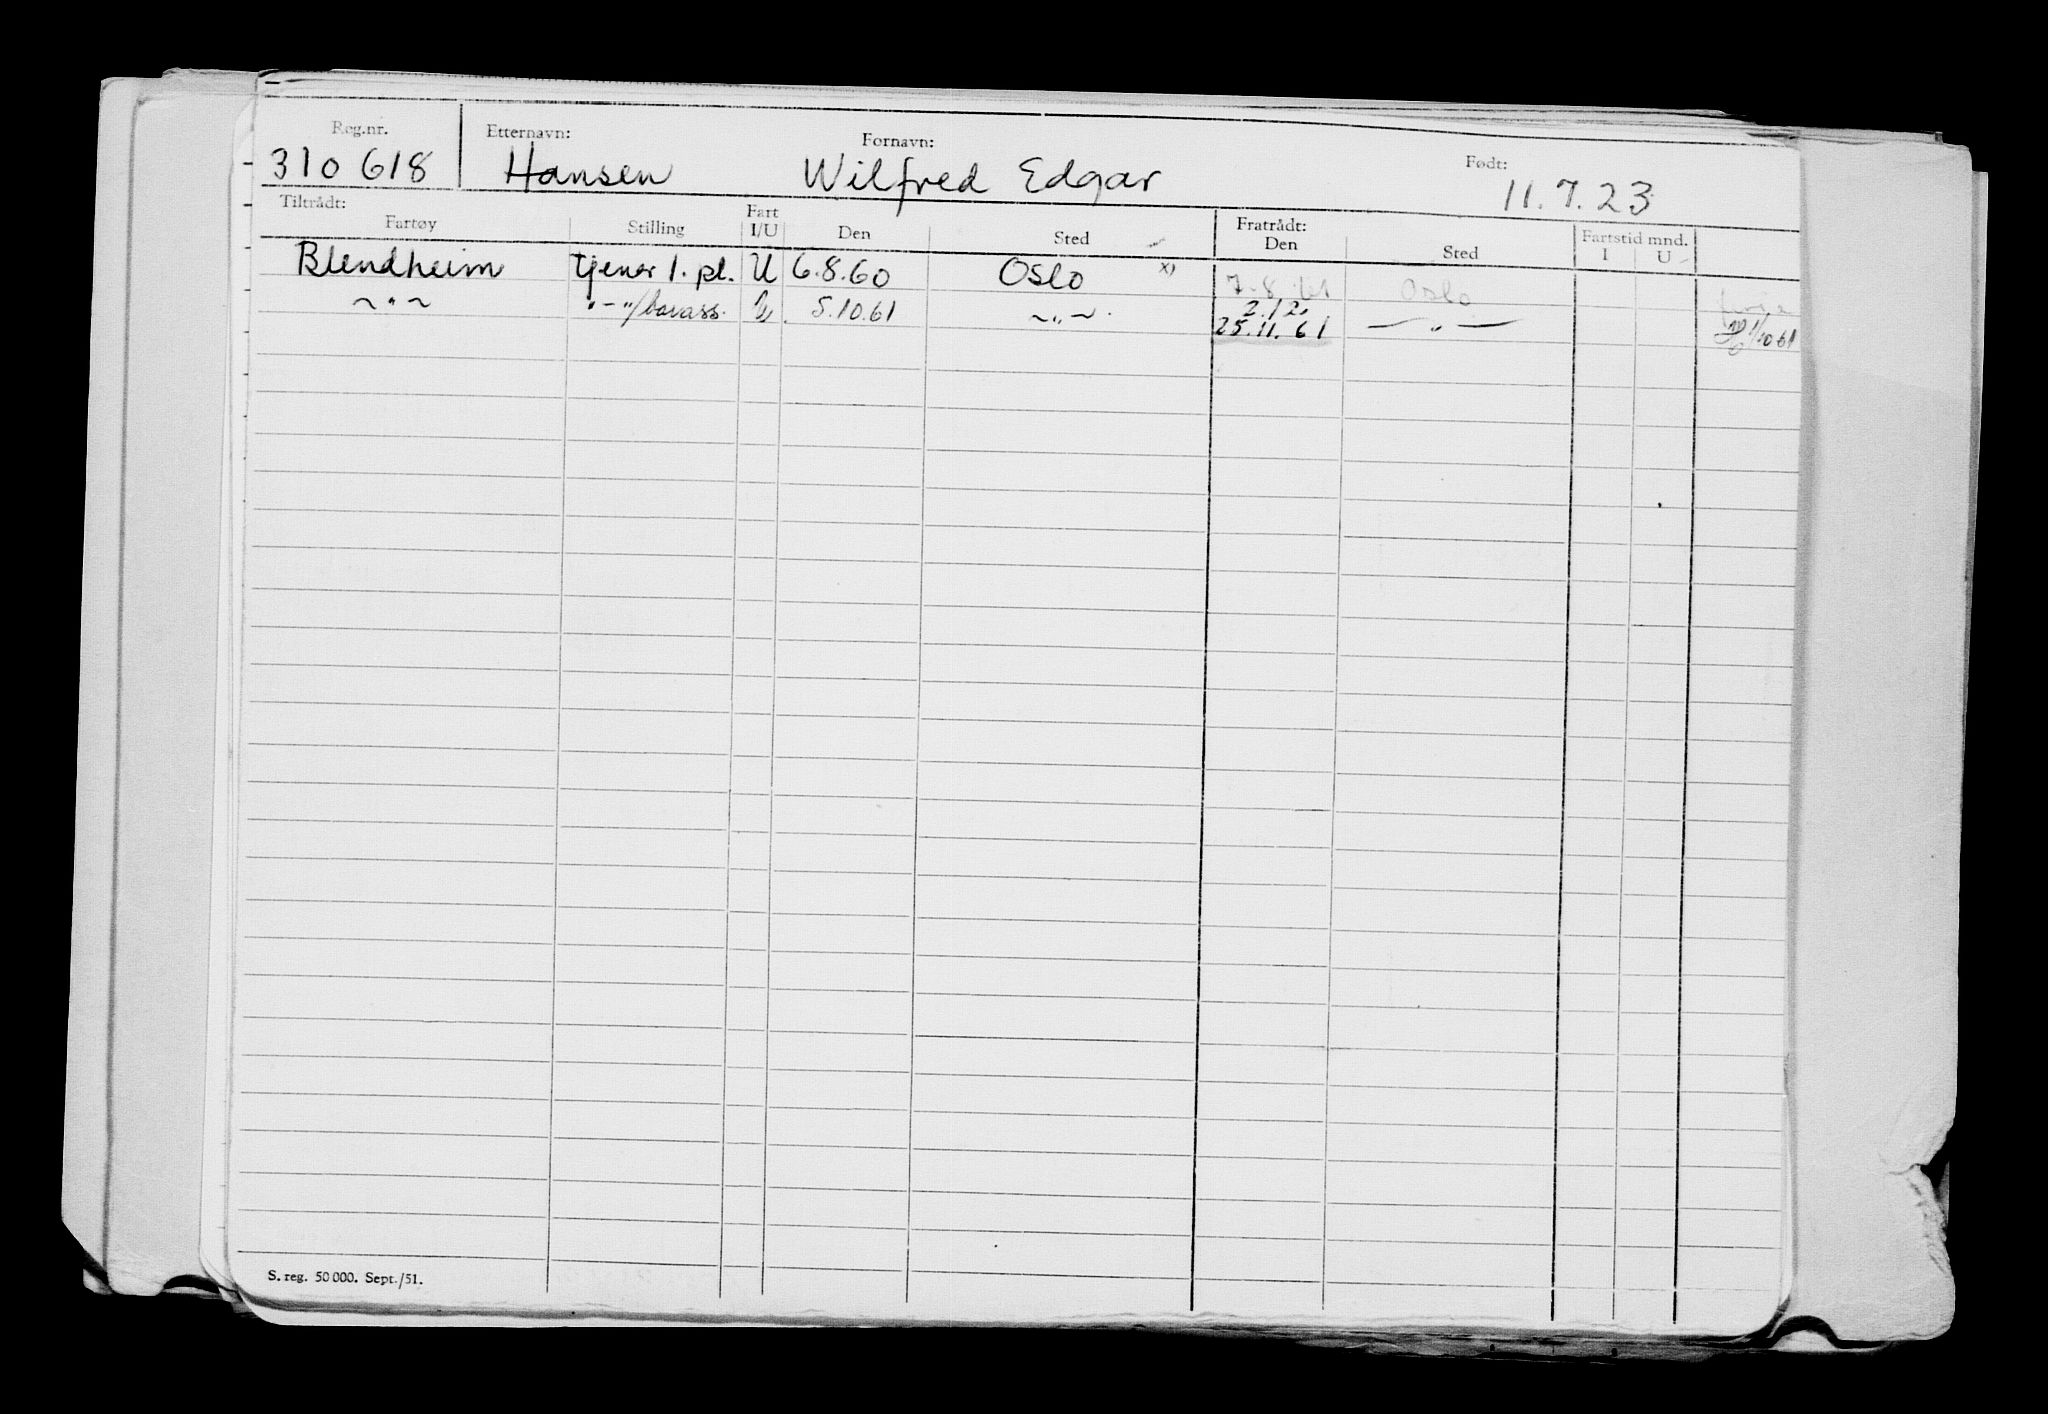 Reg.nr. Etternavn: Fornavn: Født:
310 618 Hansen Wilfred Edgar 11.7.23
Tiltrådt: Fratrådt:
Fartøy Stilling Fart I/U Den Sted Den Sted Fartstid mnd. I U
Blendheim tjener 1. pl. U 6.8.60 Oslo x) 7.8 Oslo
~ " ~ "-"/barass. U. 5.10.61 ~ " ~ 2.12.
25.11.61 — " — /10 61
S. reg. 50 000. Sept./51.